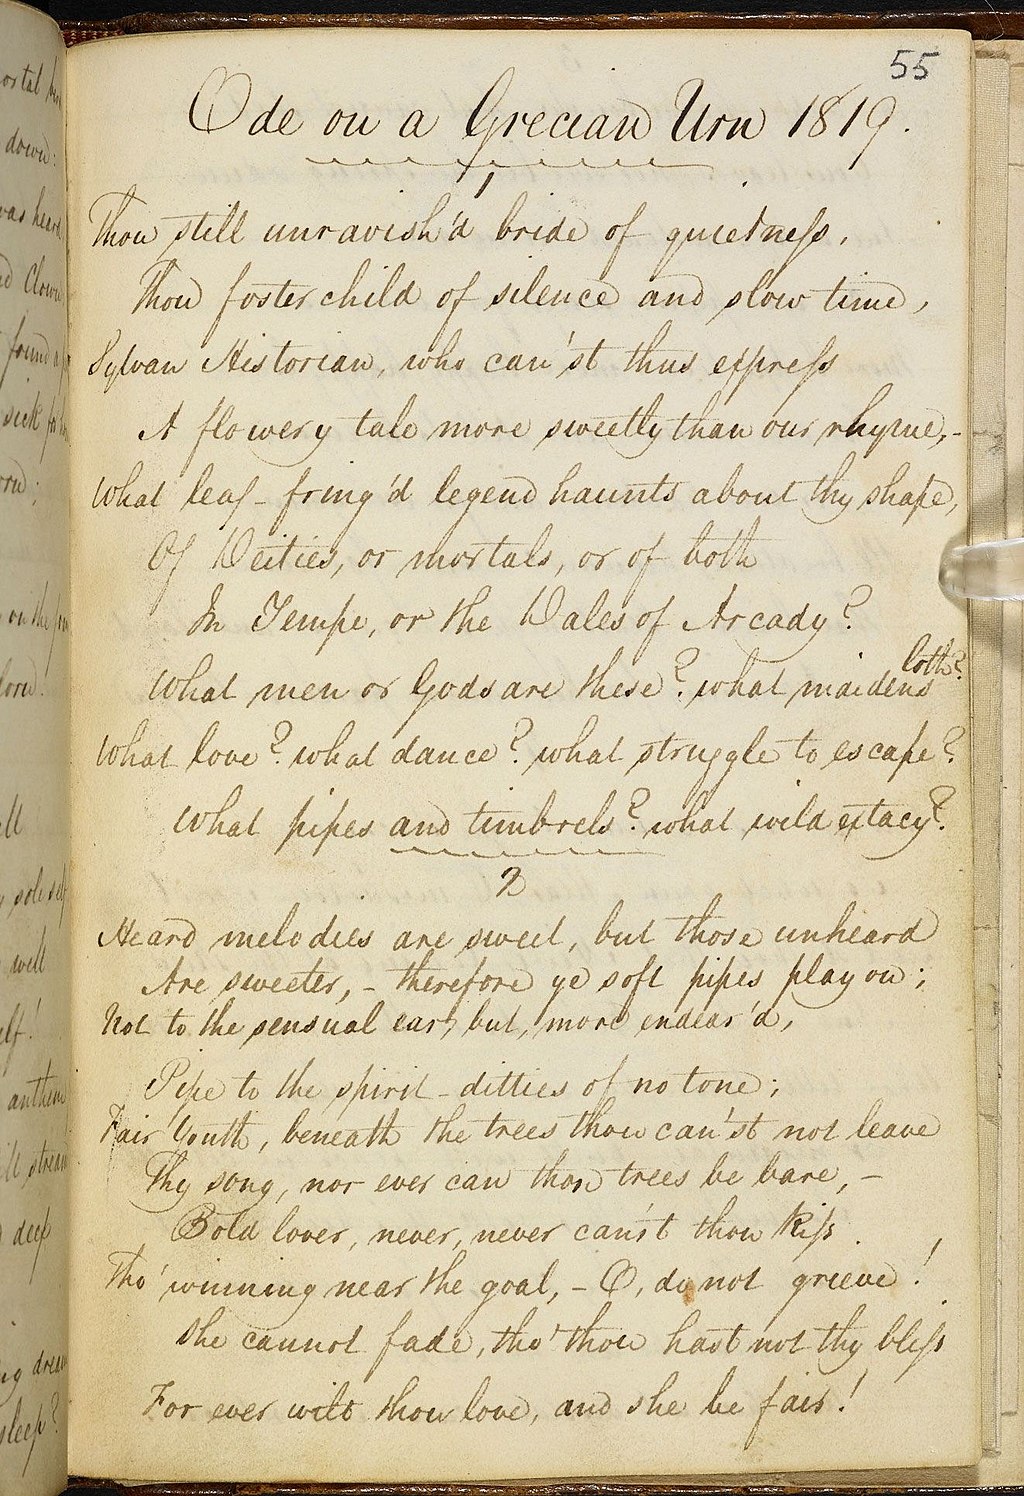 55
Ode on a Grecian Urn 1819.
1
Thou still unravish'd bride of quietness,
Thou foster child of silence and slow time,
Sylvan Historian, who can'st thus express
A flowery tale more sweetly than our rhyme,-
What leaf-fring'd legend haunts about thy shape,
Of Deities, or mortals, or of both
In Tempe, or the Dales of Arcady?
What men or Gods are these? what maidens loth?
What love? what dance? what struggle to escape?
What pipes and timbrels? what wild extacy?
2
Heard melodies are sweet, but those unheard
Are sweeter,- therefore ye soft pipes play on;
Not to the sensual ear, but, more endear'd,
Pipe to the spirit-ditties of no tone;
Fair Youth, beneath the trees thou can'st not leave
Thy song, nor ever can those trees be bare,-
Bold lover, never, never can'st thou kiss
Tho' winning near the goal,- O, do not grieve!
She cannot fade, tho' thou hast not thy bliss
For ever wilt thou love, and she be fair!
down:
was heard
Clown
found a
sick for
on the
sole self
anthem
stream
deep
sleep?